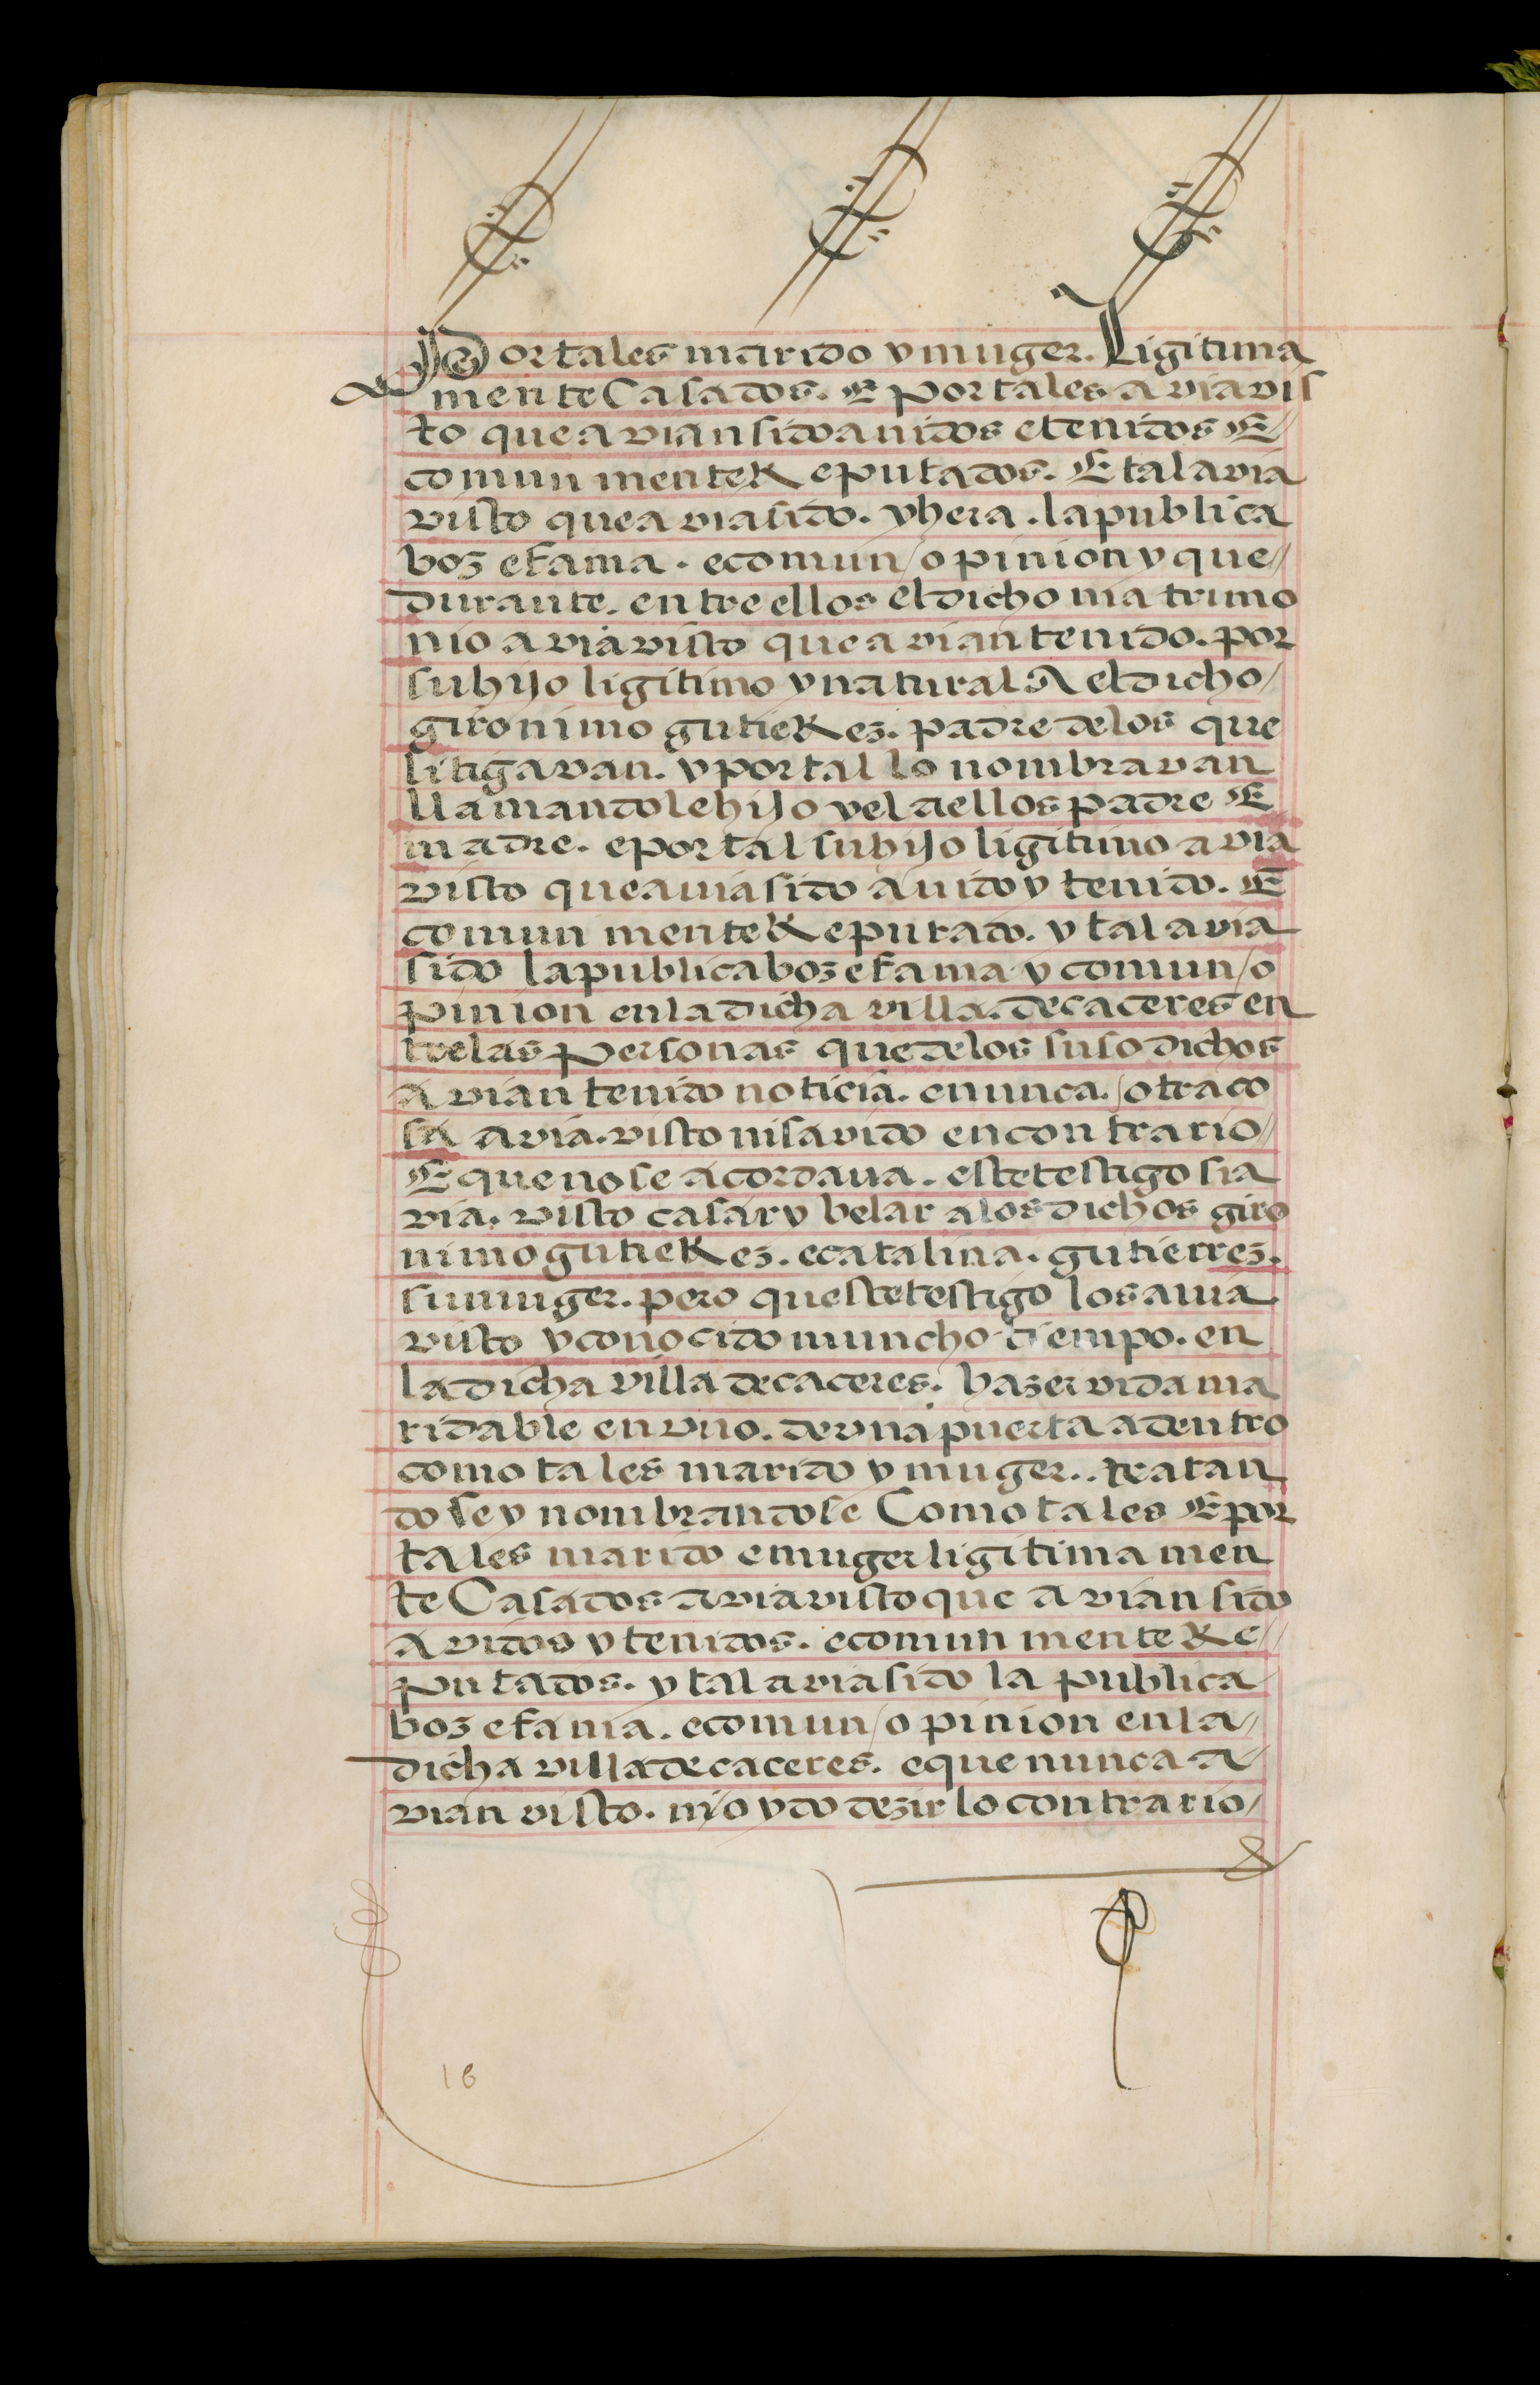 Por tales marido y muger. Ligitima
mente Casados. E por tales avia vis
to que avian sido auidos e tenidos E
comun mente Reputados. E tal avia
visto que avia sido. y hera. la publica
boz e fama. e comun / opinion y que //
durante. entre ellos el dicho matrimo
nio avia visto que avian tenido. por
su hijo ligitimo y natural A el dicho /
gironimo gutieRez. padre de los que
litigavan. y por tal lo nombravan
llamandole hijo y el a ellos padre E
madre. e por tal su hijo ligitimo avia
visto que auia sido auido y tenido. E
comun mente Reputado. y tal avia
sido la publica boz e fama y comun / o
pinion en la dicha villa. de caceres en
tre las personas que de los suso dichos
avian tenido noticia. e nunca. / otra co
sa avia. visto ni savido en contrario //
E que no se acordaua. este testigo si a
via. visto casar y belar a los dichos giro
nimo gutieRez. e catalina. gutierrez.
su muger. pero queste testigo los auia
visto y conocido muncho tiempo. en
la dicha villa de caceres. hazer vida ma
ridable en vno. de vna puerta adentro
como tales marido y muger.. tratan
dose y nombrandose Como tales E por
tales marido e muger ligitima men
te Casados avia visto que avian sido
avidos y tenidos. e comun mente Re //
putados. y tal avia sido la publica
boz e fama. e comun / opinion en la //
dicha villa de caceres. e que nunca a //
vian visto. ni / oydo dezir lo contrario /
16